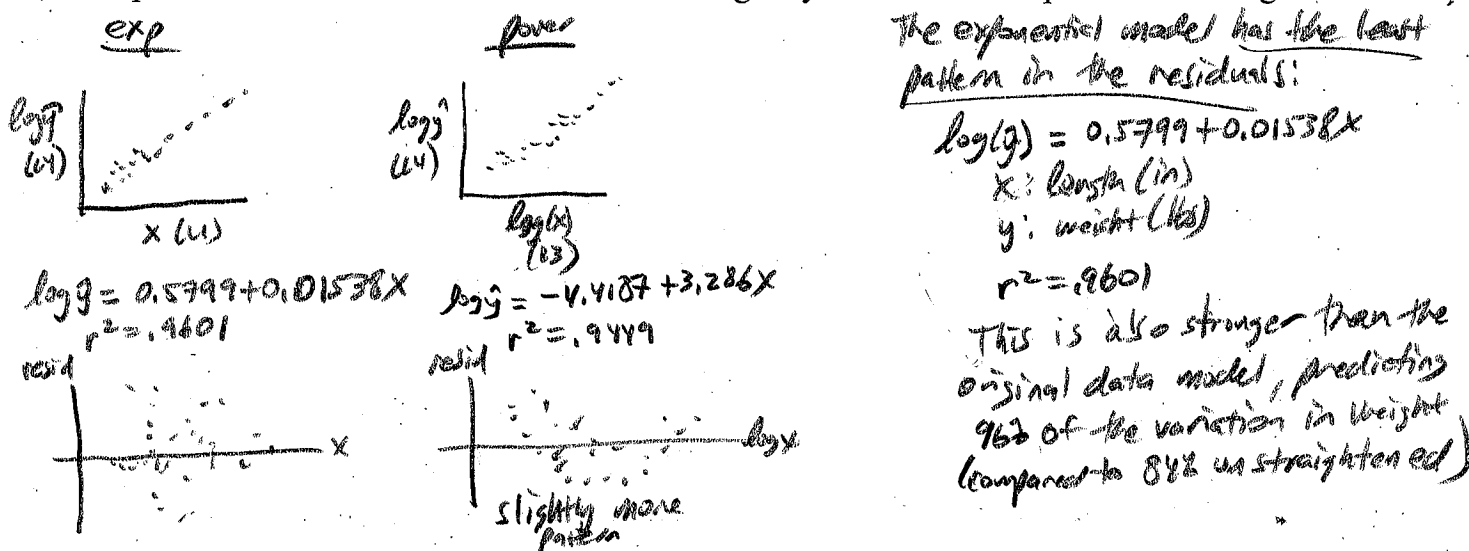 exp
log ŷ
(L4)
x (L1)
log ŷ = 0.5799+0.01538x
r² = .9601
resid
x
power
log ŷ
(L4)
log(x)
(L3)
log ŷ = -4.4187+3.286x
r² = .9449
resid
log x
slightly more
pattern
The exponential model has the least
pattern in the residuals:
log(ŷ) = 0.5799+0.01538x
x: length (in)
y: weight (lbs)
r² = .9601
This is also stronger than the
original data model, predicting
96% of the variation in weight
(compared to 84% unstraightened)